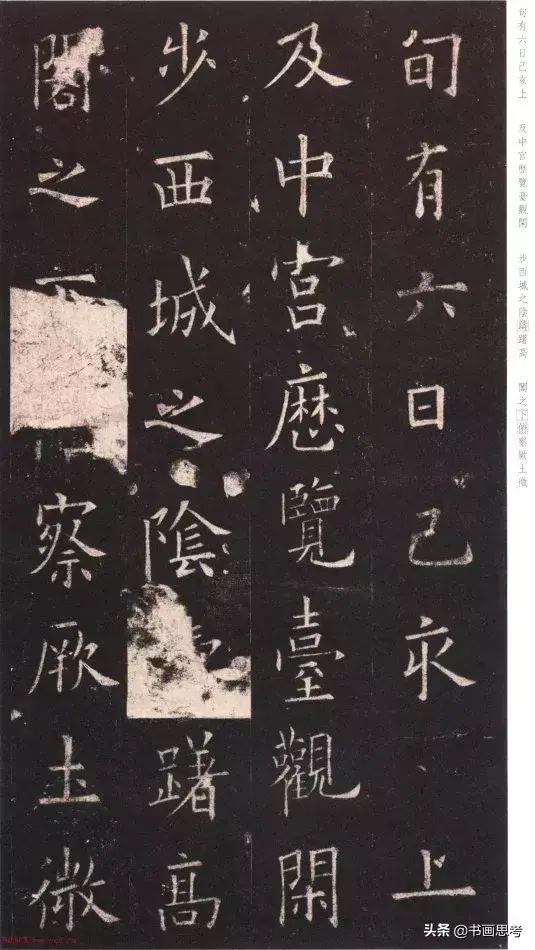 旬有六日己亥上
及中宮歷覽臺觀閑
步西城之陰躇高
閣之察厥土微
旬有六日己亥上 及中宮歷覽臺觀閑 步西城之陰躊躇高 閣之下俯察厥土微
头条 @书画思考